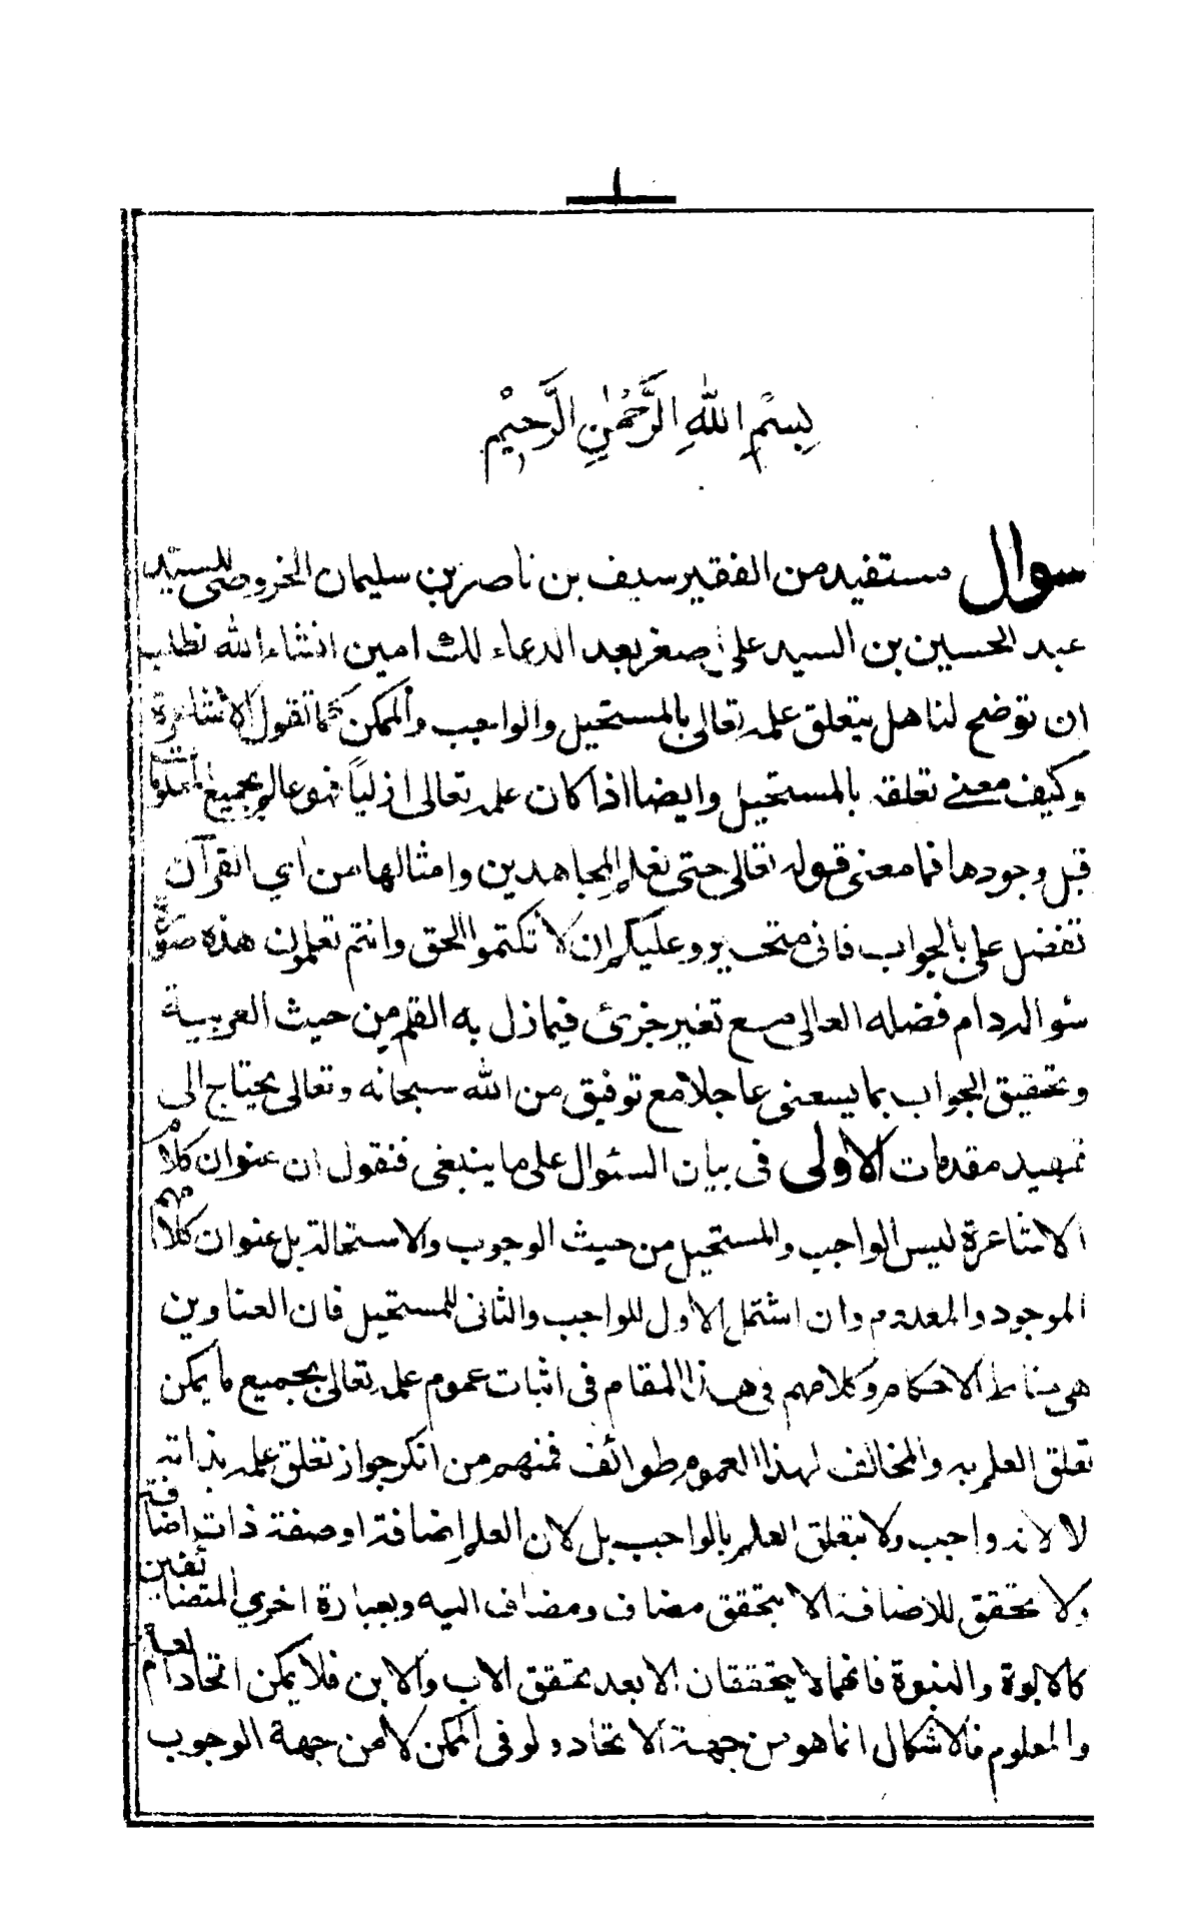 ١
بِسْمِ اللهِ الرَّحْمٰنِ الرَّحِيْمِ
سوال مستفيد من الفقير سيف بن ناصر بن سليمان الخروصى للسيّد
عبد الحسين بن السيد على اصغر بعد الدعاء لك امين انشاء الله نطلب
ان توضح لنا هل يتعلق علمه تعالى بالمستحيل والواجب والممكن كما تقول الاشاعرة
وكيف معنى تعلقه بالمستحيل وايضا اذا كان علمه تعالى ازلياً فهو عالم بجميع المعلوما
قبل وجودها فما معنى قوله تعالى حتى نعلم المجاهدين وامثالها من اي القرآن
تفضل على بالجواب فانى متحير وعليكم ان لا تكتموا الحق وانتم تعلمون هذه صورة
سئواله دام فضله العالى مع تغير جزئ فيما زل به القلم من حيث العربية
وتحقيق الجواب بما يسعنى عاجلا مع توفيق من الله سبحانه وتعالى يحتاج الى
تمهيد مقدمات الاولى فى بيان السئوال على ما ينبغى فنقول ان عنوان كلام
الاشاعرة ليس الواجب والمستحيل من حيث الوجوب والاستحالة بل عنوان كلامهم
الموجود والمعدوم وان اشتمل الاول للواجب والثانى للمستحيل فان العناوين
هى مناط الاحكام وكلامهم فى هذا المقام فى اثبات عموم علمه تعالى بجميع ما يمكن
تعلق العلم به والمخالف لهذا العموم طوائف فمنهم من انكر جواز تعلق علمه بذاته
لا لانه واجب ولا يتعلق العلم بالواجب بل لان العلم اضافة او صفة ذات اضافة
ولا تحقق للاضافة الا بتحقق مضاف ومضاف اليه وبعبارة اخري المتضائفين
كالابوة والبنوة فانهما لا يتحققان الا بعد تحقق الاب والابن فلا يمكن اتحاد العالم
والمعلوم فالاشكال انما هو من جهة الاتحاد ولو فى الممكن لا من جهة الوجوب